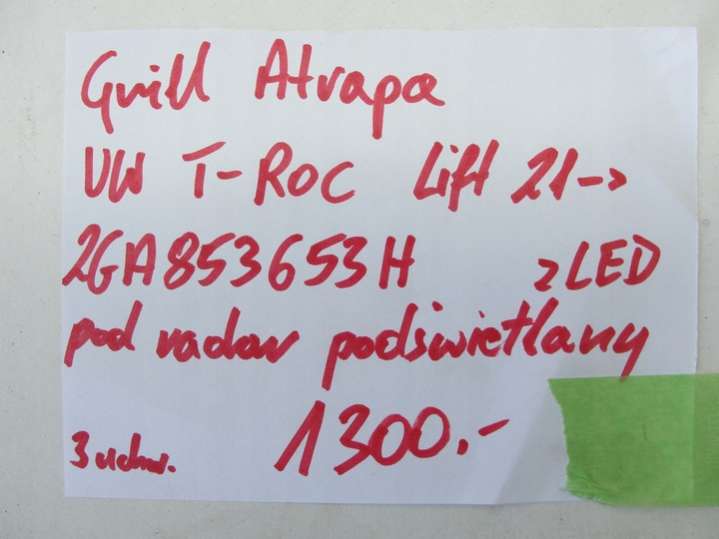 Grill Atrapa
VW T-ROC Lift 21->
2GA853653H z LED
pod radar podświetlany
1300.-
3 uchw.